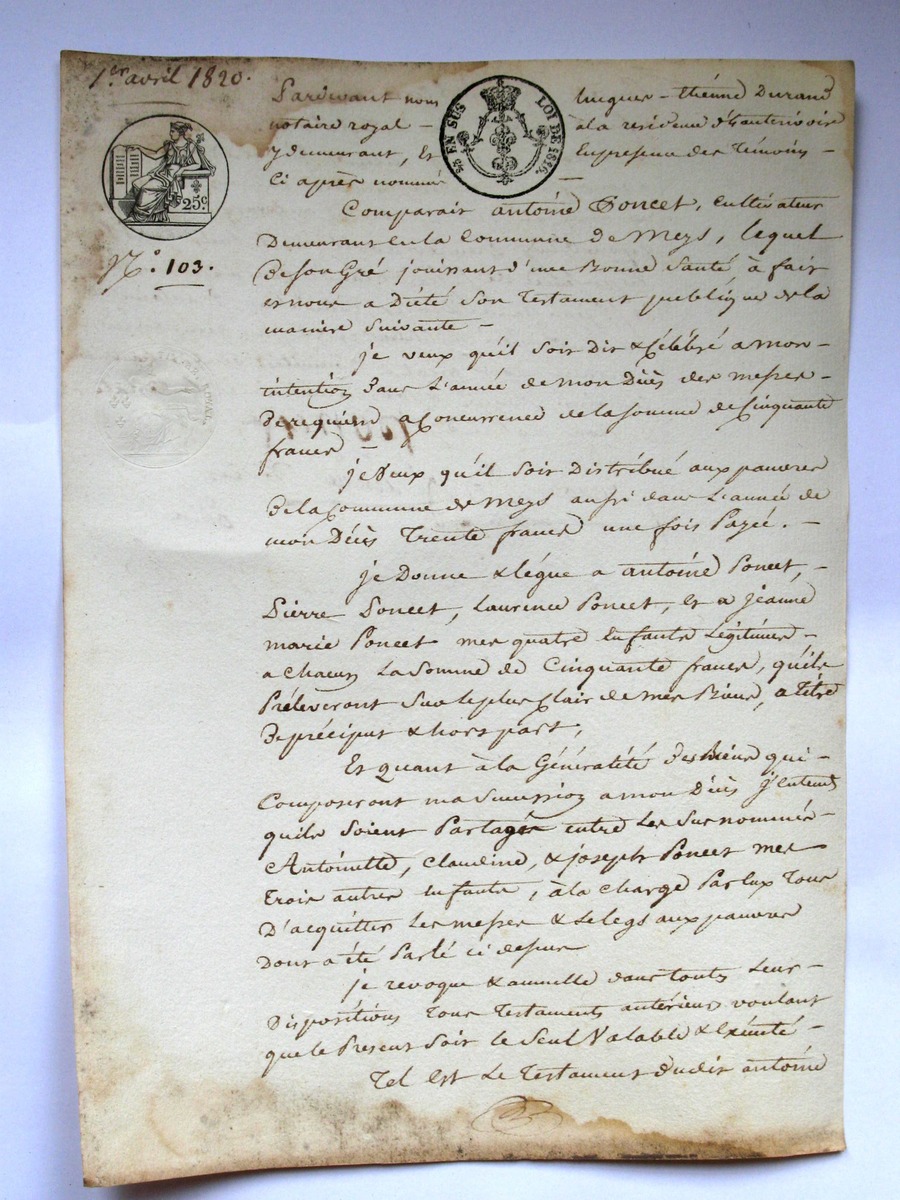 1er avril 1820.
Pardevant nous
jacques - thiénne Durand
notaire royal -
à la residence d'hauterivoire
y demeurant, Et
En presence des Témoins -
Ci après nommé
EN SUS
LOI DE 1816.
25c
No. 103.
Comparait antoine Poncet, Cultivateur
Demeurant En la Commune de Meys, lequel
De son Gré jouissant d'une Bonne Santé à fait
et nous a Dicté son Testament publique de la
maniere suivante -
je veux qu'il soit Dit & Célébré a mon -
intention Dans L'année de mon Décès des messes -
De requiem a Concurrence de la somme de Cinquante
francs -
je Veux qu'il soit Distribué aux pauvres
De la Commune de Meys aussi dans L'année de
mon Décès Trente francs une fois Payée. -
je Donne & légue a antoine Poncet, -
Pierre Poncet, Laurence Poncet, Et a jeanne
marie Poncet mes quatre Enfants Légitimes -
a chacun La Somme de Cinquante francs, qu'ils
Préleveront sur le plus Clair de mes Biens, a Titre
De préciput & hors part,
Et Quant à la Généralité des biens qui -
Composeront ma succession a mon Décès J'entend
quils soient Partagés entre Les sus nommés -
Antoinette, Claudine, & joseph Poncet mes
trois autres Enfants, à la Charge Par Eux Tous
D'acquitter Les messes & Le legs aux pauvres
Dont a été Parlé ci dessus
je revoque & annulle dans toutes Leurs -
Dispositions Tous Testaments antérieurs voulant
que le Present soit le seul Valable & Exécuté -
Tel Est Le Testament Dudit antoine